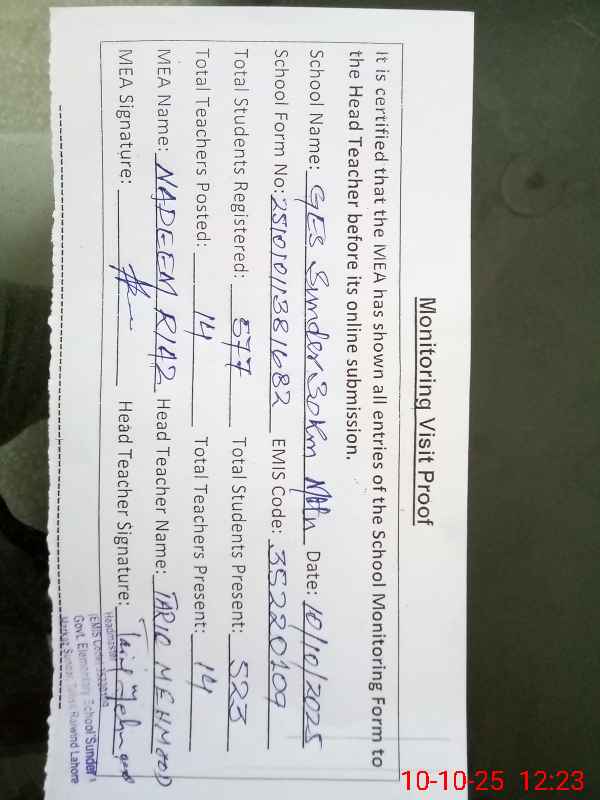 Monitoring Visit Proof
It is certified that the MEA has shown all entries of the School Monitoring Form to
the Head Teacher before its online submission.
School Name: GES Sunder 30km Mltn Date: 10/10/2025
School Form No: 2510101381682 EMIS Code: 35220109
Total Students Registered: 577 Total Students Present: 523
Total Teachers Posted: 14 Total Teachers Present: 14
MEA Name: NADEEM RIAZ Head Teacher Name: TARIQ MEHMOOD
MEA Signature: Head Teacher Signature: Tariq Mehmood
Headmaster
(EMIS Code: 35220109
Govt. Elementary School Sunder
Markaz Sunder Tehsil Raiwind Lahore
10-10-25 12:23